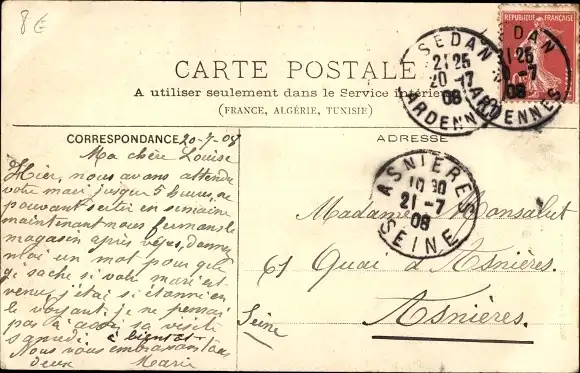 8 €
CARTE POSTALE
A utiliser seulement dans le Service intérieur
(FRANCE, ALGÉRIE, TUNISIE)
RÉPUBLIQUE FRANÇAISE
SEDAN
21 25
20 -7
08
ARDENNES
SEDAN
21 25
-7
08
ARDENNES
CORRESPONDANCE 20-7-08
Ma chère Louise
Hier, nous avons attendu
votre mari jusque 5 heures, ne
pouvant sortir en semaine
maintenant nous fermons le
magasin après donnez
moi un mot pour que
je sache si votre mari est
venu, j'étai si étonnée en
le voyant, je ne pensai
pas à sa visite
samedi à bientôt
Nous vous embrassons tous
deux Marie
ADRESSE
ASNIERES
10 30
21 -7
08
SEINE
Madame Monsalut
61 Quai d'Asnières
Asnières.
Seine